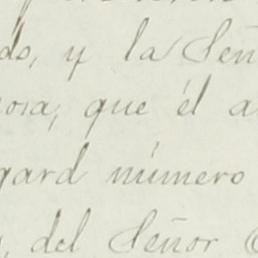 do, y la Señ
que él a
gard número
del Señor